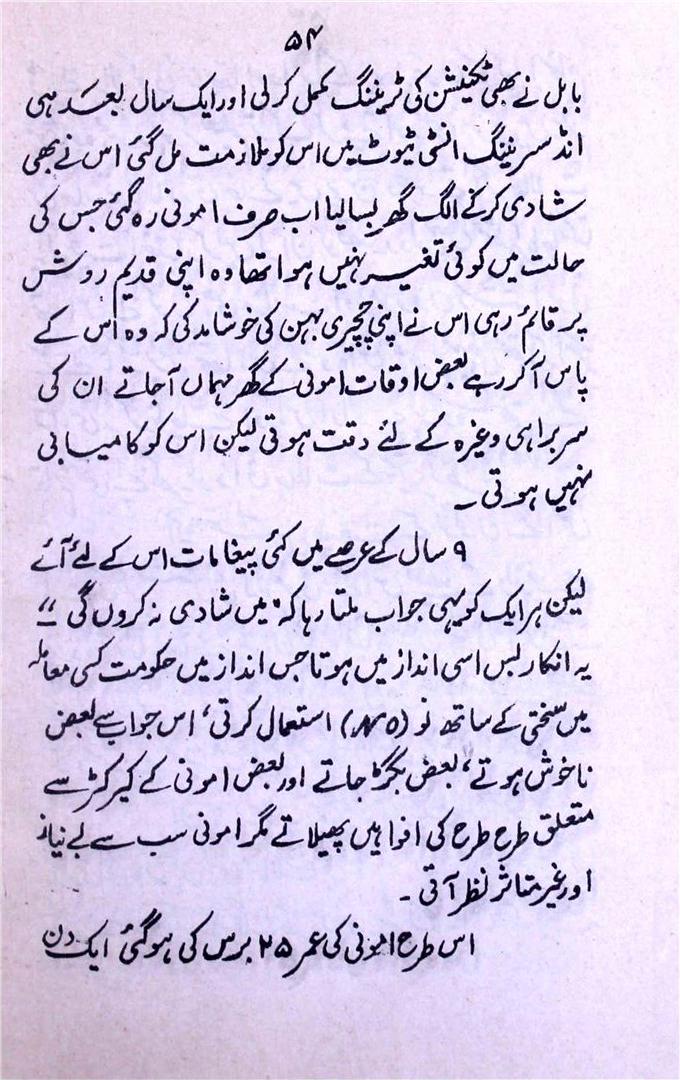 ۵۴
بابل نے بھی ٹکنیشن کی ٹریننگ مکمل کرلی اور ایک سال بعد ہی
انڈسٹریئنگ انسٹی ٹیوٹ میں اس کو ملازمت مل گئی اس نے بھی
شادی کرکے الگ گھر بسالیا اب صرف امونی رہ گئی جس کی
حالت میں کوئی تغیر نہیں ہوا تھا وہ اپنی قدیم روش
پر قائم رہی اس نے اپنی چچیری بہن کی خوشامد کی کہ وہ اس کے
پاس آکر رہے بعض اوقات امونی کے گھر مہماں آجاتے ان کی
سربراہی وغیرہ کے لئے دقت ہوتی لیکن اس کو کامیابی
نہیں ہوتی ۔
۹ سال کے عرصے میں کئی پیغامات اس کے لئے آئے
لیکن ہر ایک کو یہی جواب ملتا رہا کہ "میں شادی نہ کروں گی"
یہ انکار بس اسی انداز میں ہوتا جس انداز میں حکومت کسی معاملہ
میں سختی کے ساتھ نو (NO) استعمال کرتی، اس جواب سے بعض
ناخوش ہوتے، بعض بگڑ جاتے اور بعض امونی کے کیرکٹر سے
متعلق طرح طرح کی افواہیں پھیلاتے مگر امونی سب سے بے نیاز
اور غیر متاثر نظر آتی ۔
اس طرح امونی کی عمر ۲۵ برس کی ہوگئی ایک دن